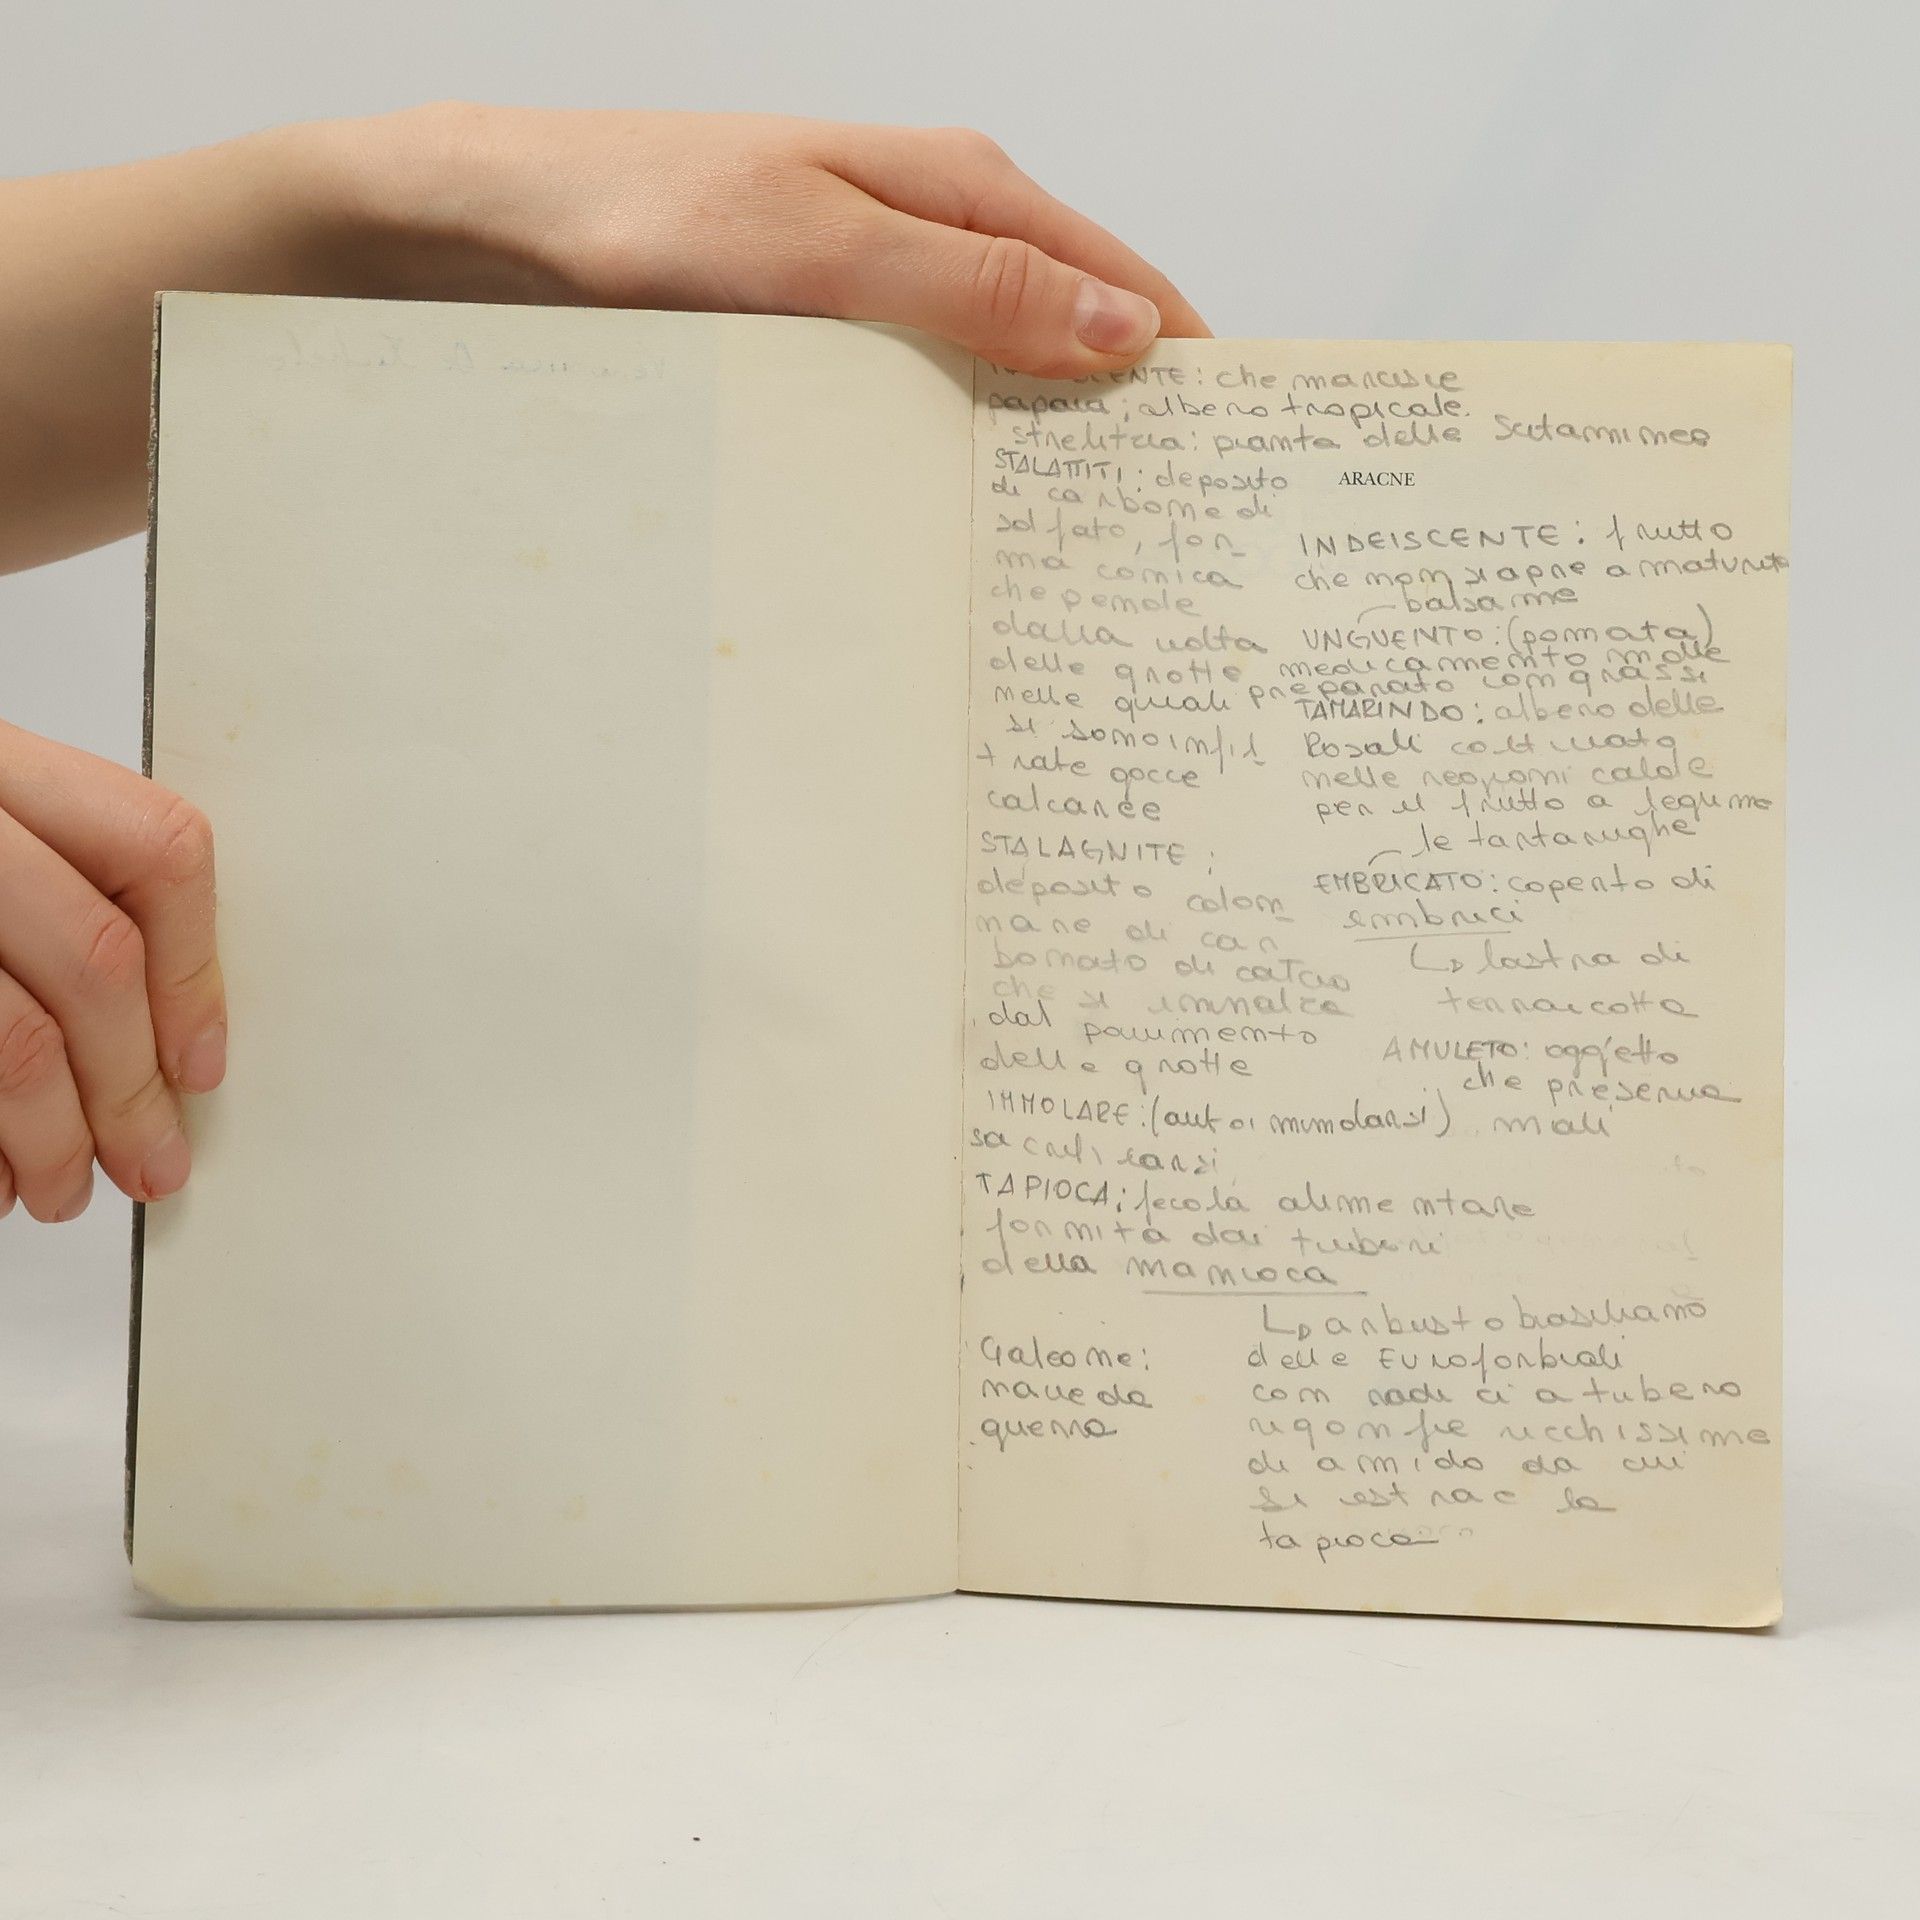 ENTE: che marcisce
papaia; albero tropicale.
strelitzia: pianta delle Scitaminee
STALATTITI: deposito
di carbone di
solfato, for-
ma conica
che pende
dalla volta
delle grotte
nelle quali
si sono infil-
trate gocce
calcaree
STALAGNITE:
deposito colon-
nare di car
bonato di calcio
che si innalza
dal pavimento
delle grotte
IMMOLARE: (autoimmolarsi)
sacrificarsi
TAPIOCA: fecola alimentare
fornita dai tuberi
della manioca
Galeone:
nave da
guerra
ARACNE
INDEISCENTE: frutto
che non si apre a maturità
balsame
UNGUENTO: (pomata)
medicamento molle
preparato con grassi
TAMARINDO: albero delle
Rosali coltivato
nelle regioni calde
per il frutto a legume
le tartarughe
EMBRICATO: coperto di
embrici
↳ lastra di
terracotta
AMULETO: oggetto
che preserva
mali
↳ arbusto brasiliano
delle Euroforbiali
con radici a tubero
rigonfie ricchissime
di amido da cui
si estrae la
tapioca